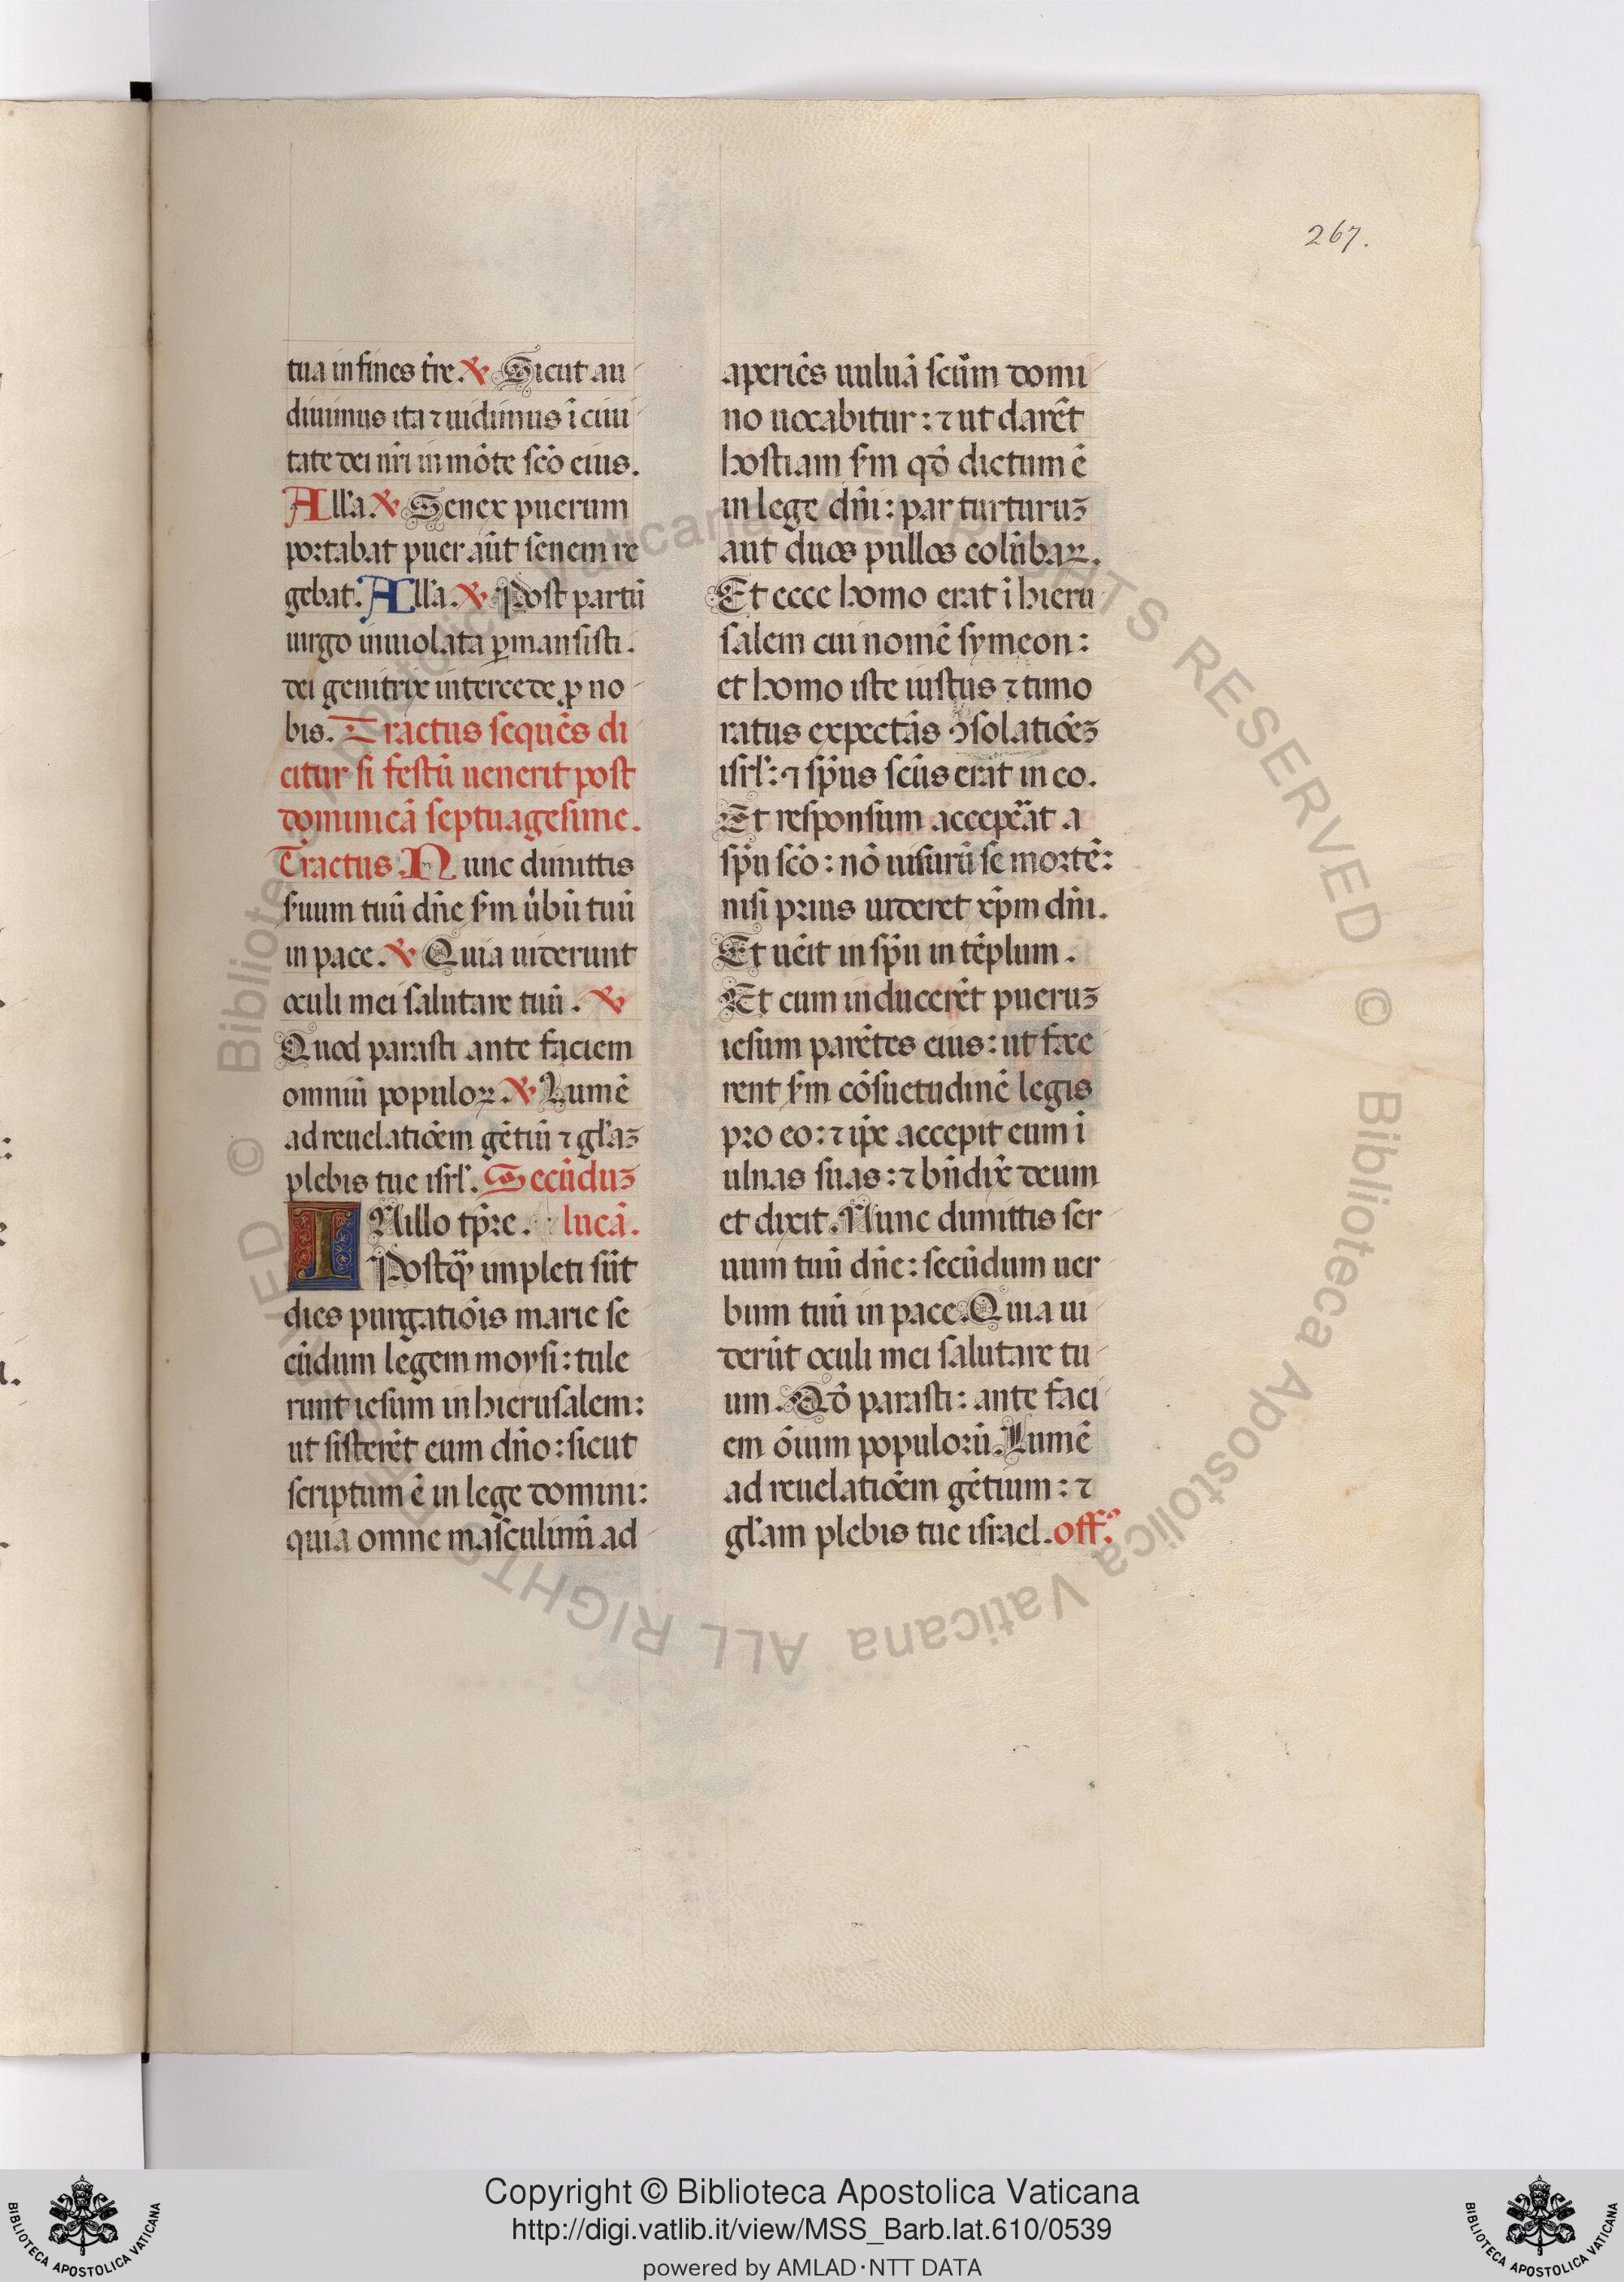 267.
tua in fines t̄re. ℣ Sicut au
diuimus ita ⁊ uidimus ī ciui
tate dei nr̄i in mōte scō eius.
All'a ℣ Senex puerum
portabat puer aūt senem re
gebat. All'a. ℣ Post partū
uirgo inuiolata ꝑmansisti.
dei genitrix intercede ꝓ no
bis. Tractus sequēs di
citur si festū uenerit post
dominicā septuagesime.
Tractus. Nunc dimittis
s̄uum tuū dn̄e s̄m u̔bū tuū
in pace. ℣ Quia uiderunt
oculi mei salutare tuū. ℣
Quod parasti ante faciem
omniū populoꝝ. ℣ Lumē
ad reuelatiōem gētiū ⁊ gl'aꝫ
plebis tue isrl'. Secūduꝫ
INillo tp̄re. lucā.
Postq̄ impleti sūt
dies purgatiōis marie se
cūdum legem moysi: tule
runt iesum in hierusalem:
ut sisterēt eum dn̄o: sicut
scriptum ē in lege domini:
quia omne masculinū ad
aperiēs uuluā scūm domi
no uocabitur: ⁊ ut darēt
hostiam s̄m qd̄ dictum ē
in lege dn̄i: par turturuꝫ
aut duos pullos colūbaꝝ.
Et ecce homo erat ī hieru
salem cui nomē symeon:
et homo iste iustus ⁊ timo
ratus expectās ꝯsolatiōeꝫ
isrl': ⁊ sp̄us scūs erat in eo.
Et responsum accepāt a
sp̄u scō: nō uisurū se mortē:
nisi prius uideret xp̄m dn̄i.
Et uēit in sp̄u in tēplum.
Et cum inducerēt pueruꝫ
iesum parētes eius: ut face
rent s̄m cōsuetudinē legis
pro eo: ⁊ ip̄e accepit eum i
ulnas suas: ⁊ bn̄dix̄ deum
et dixit. Nunc dimittis ser
uum tuū dn̄e: secūdum uer
bum tuū in pace. Quia ui
derūt oculi mei salutare tu
um. Qd̄ parasti: ante faci
em ōium populorū. Lumē
ad reuelatiōem gētium: ⁊
gl'am plebis tue israel. off.
Copyright © Biblioteca Apostolica Vaticana
http://digi.vatlib.it/view/MSS_Barb.lat.610/0539
powered by AMLAD·NTT DATA
BIBLIOTECA APOSTOLICA VATICANA
BIBLIOTECA APOSTOLICA VATICANA
© Biblioteca Apostolica Vaticana ALL RIGHTS RESERVED
© Biblioteca Apostolica Vaticana ALL RIGHTS RESERVED